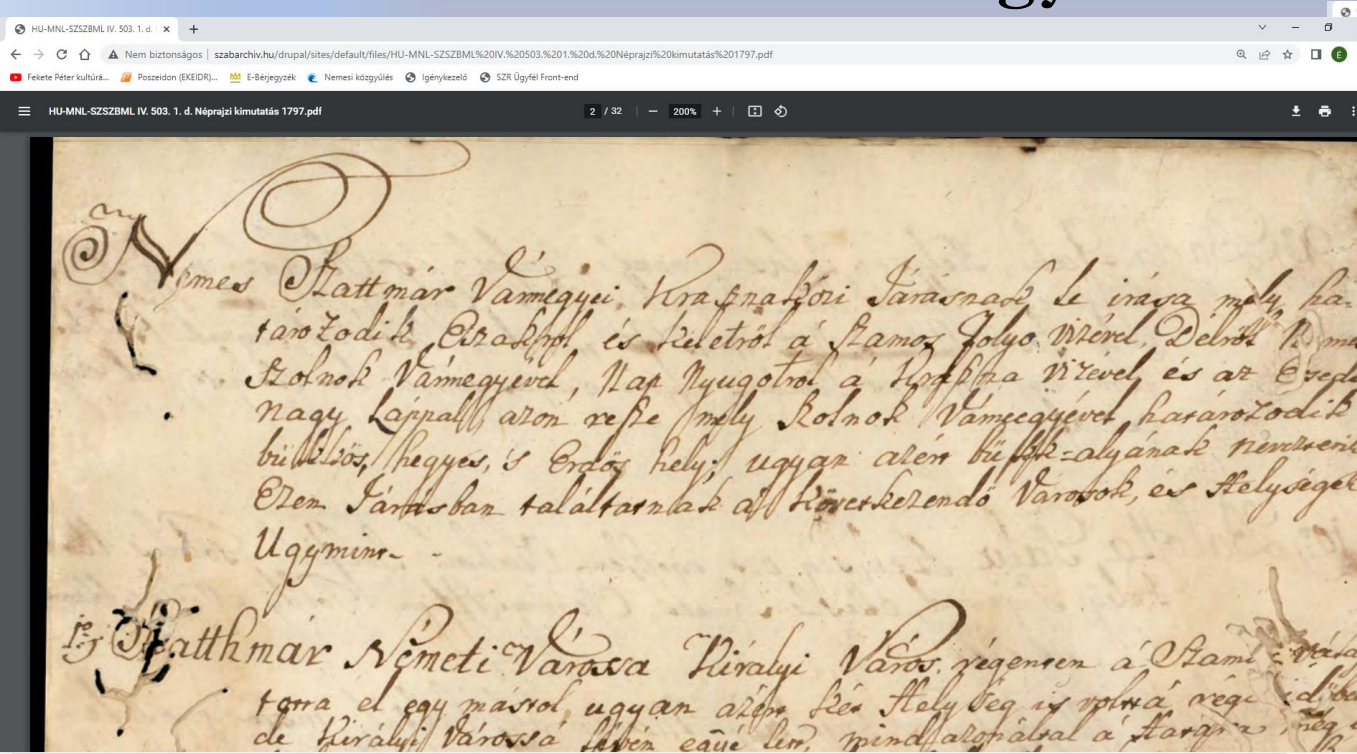 gy
HU-MNL-SZSZBML IV. 503. 1. d.
Nem biztonságos | szabarchiv.hu/drupal/sites/default/files/HU-MNL-SZSZBML%20IV.%20503.%201.%20d.%20Néprajzi%20kimutatás%201797.pdf
Fekete Péter kultúrá... Poszeidon (EKEIDR)... E-Bérjegyzék Nemesi közgyűlés Igénykezelő SZR Ügyfél Front-end
HU-MNL-SZSZBML IV. 503. 1. d. Néprajzi kimutatás 1797.pdf 2 / 32 200%
Nemes Szattmár Vármegyei Krasznaközi Járásnak le irása mely ha-
tározodik Északról és keletről á Szamos Folyo vizével, Délről
Szolnok Vármegyével, Nap Nyugotrol á Kraszna vizével, és az Ecsedi
nagy Láppal, azon része mely Szolnok Vármegyével határozodik
bükkös, hegyes, 's Erdős hely; ugyan azért bükk=alyának
Ezen Járásban találtatnak a következendő Varosok, és Helységek
Ugymint
1o Szatthmár Németi Várossa Királyi Város. régenten á
el egy mástol, ugyan azért két Helység is
de Királyi Várossá lévén eggyé lett, mind azonáltal á